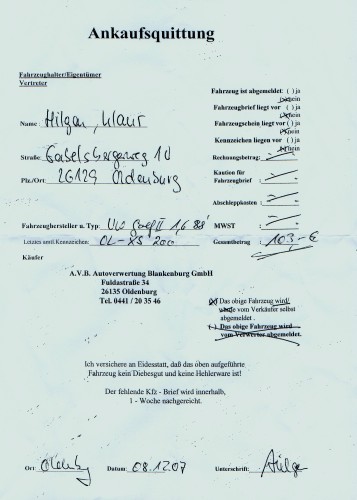 Ankaufsquittung
Fahrzeughalter/Eigentümer
Vertreter
Fahrzeug ist abgemeldet: ( ) ja
( ) nein
Fahrzeugbrief liegt vor ( ) ja
( ) nein
Name : Hilgen, Klaus
Fahrzeugschein liegt vor ( ) ja
( ) nein
Kennzeichen liegen vor ( ) ja
( ) nein
Straße: 10
Rechnungsbetrag:
Plz./Ort: 26129 Oldenburg
Kaution für
Fahrzeugbrief :
Abschleppkosten :
Fahrzeughersteller u. Typ: VW Golf II 1,6 88'
MWST :
Letztes amtl.Kennzeichen: OL-XS 200
Gesamtbetrag : 103,- €
Käufer
A.V.B. Autoverwertung Blankenburg GmbH
Fuldastraße 34
26135 Oldenburg
Tel. 0441 / 20 35 46
(x) Das obige Fahrzeug wird/
wurde vom Verkäufer selbst
abgemeldet .
( ) Das obige Fahrzeug wird
vom Verwerter abgemeldet.
Ich versichere an Eidesstatt, daß das oben aufgeführte
Fahrzeug kein Diebesgut und keine Hehlerware ist!
Der fehlende Kfz - Brief wird innerhalb,
1 - Woche nachgereicht.
Ort Oldenburg Datum 08.12.07 Unterschrift: